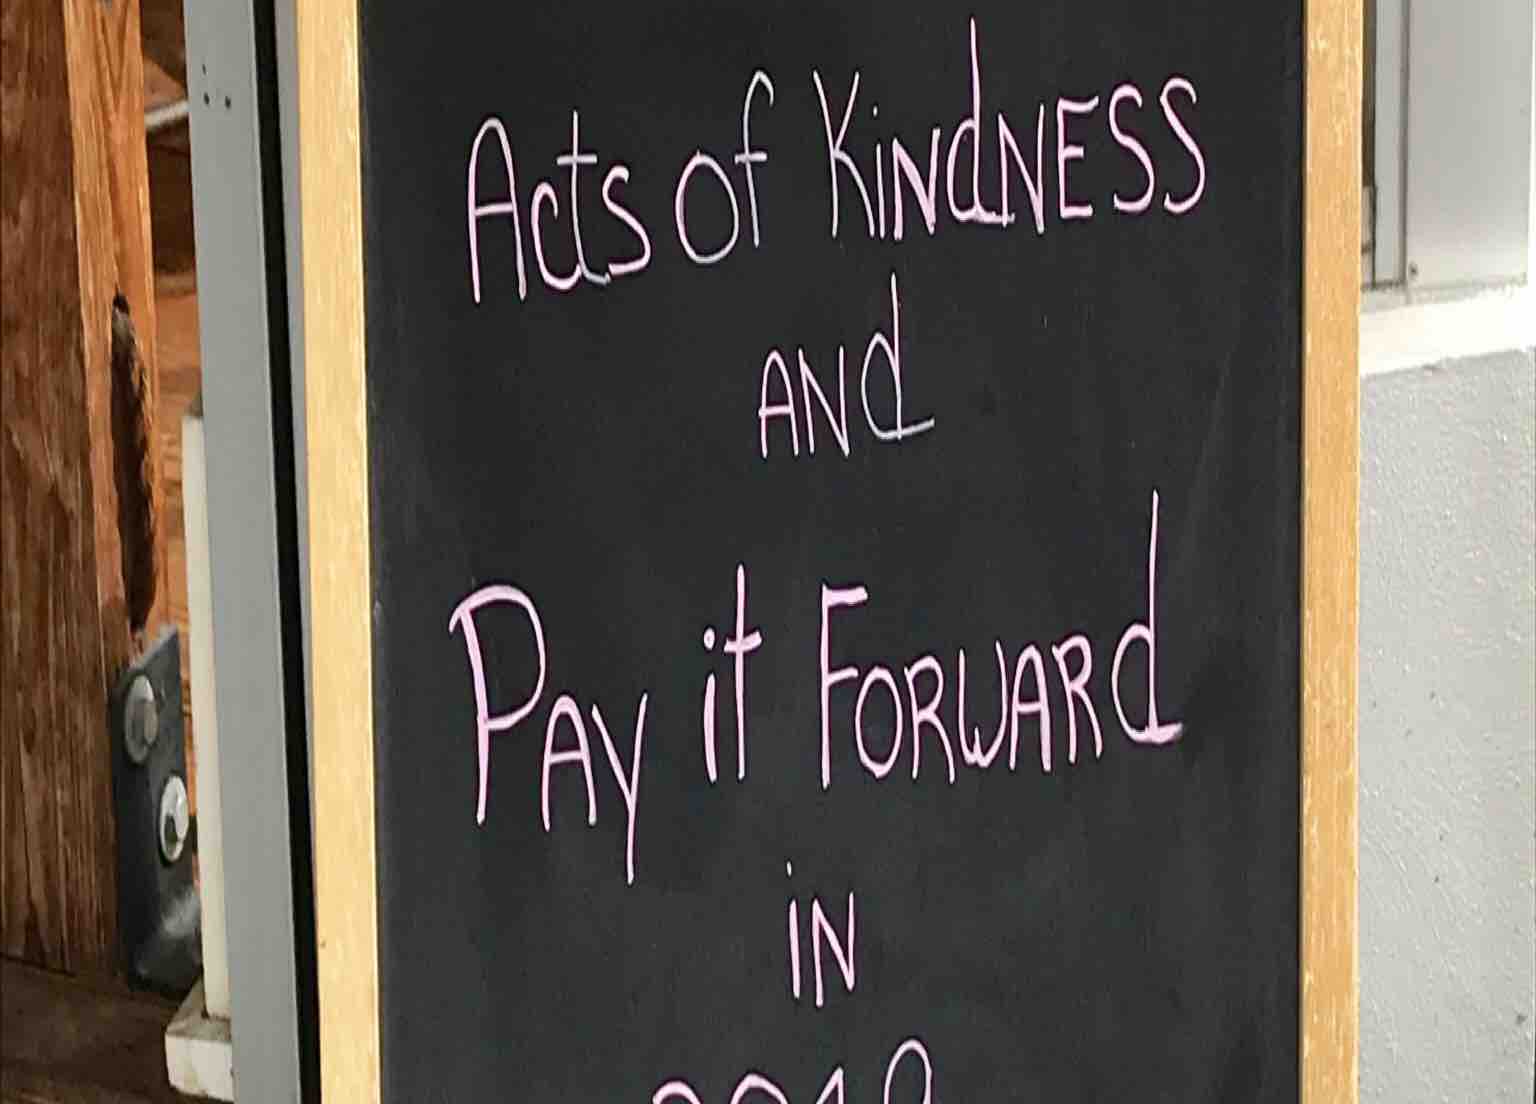 Acts of KindNESS
ANd
PAy it FORWARd
iN